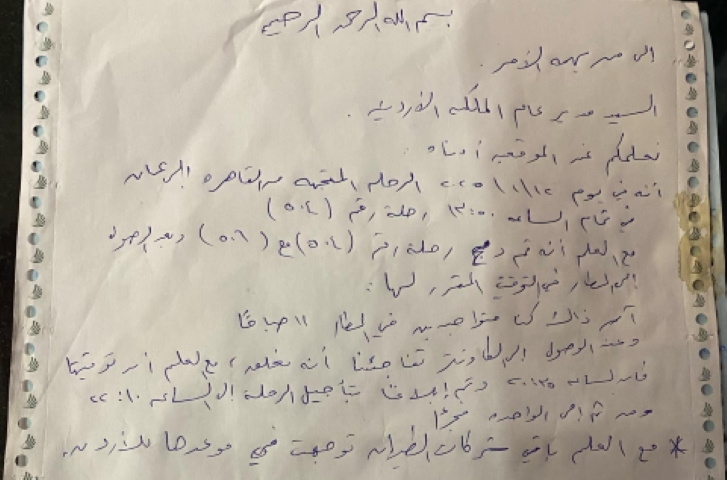 بسم الله الرحمن الرحيم
الى من يهمه الأمر .
السيد مدير عام الملكية الأردنية .
نعلمكم نحن الموقعين أدناه :
أنه في يوم ٢٠٢٥/١/١٢ الرحلة المتجهة من القاهرة الى عمان
في تمام الساعة ١٣:٥٠ رحلة رقم (٥٠٤)
مع العلم أنه تم دمج رحلة رقم (٥٠٤) مع (٥٠٦) وبعد الوصول
الى المطار في التوقيت المقرر لها :
ذلك كنا متواجدين في المطار ١١ صباحًا
وعند الوصول الى الكاونتر تفاجئنا أنه مغلق ، مع العلم أن توقيتها
كان الساعة ٢٠:٣٥ وتم إبلاغنا بتأجيل الرحلة إلى الساعة ٢٢:١٠
ومن ثم إلى الواحدة فجرًا
* مع العلم باقي شركات الطيران توجهت في موعدها للأردن .